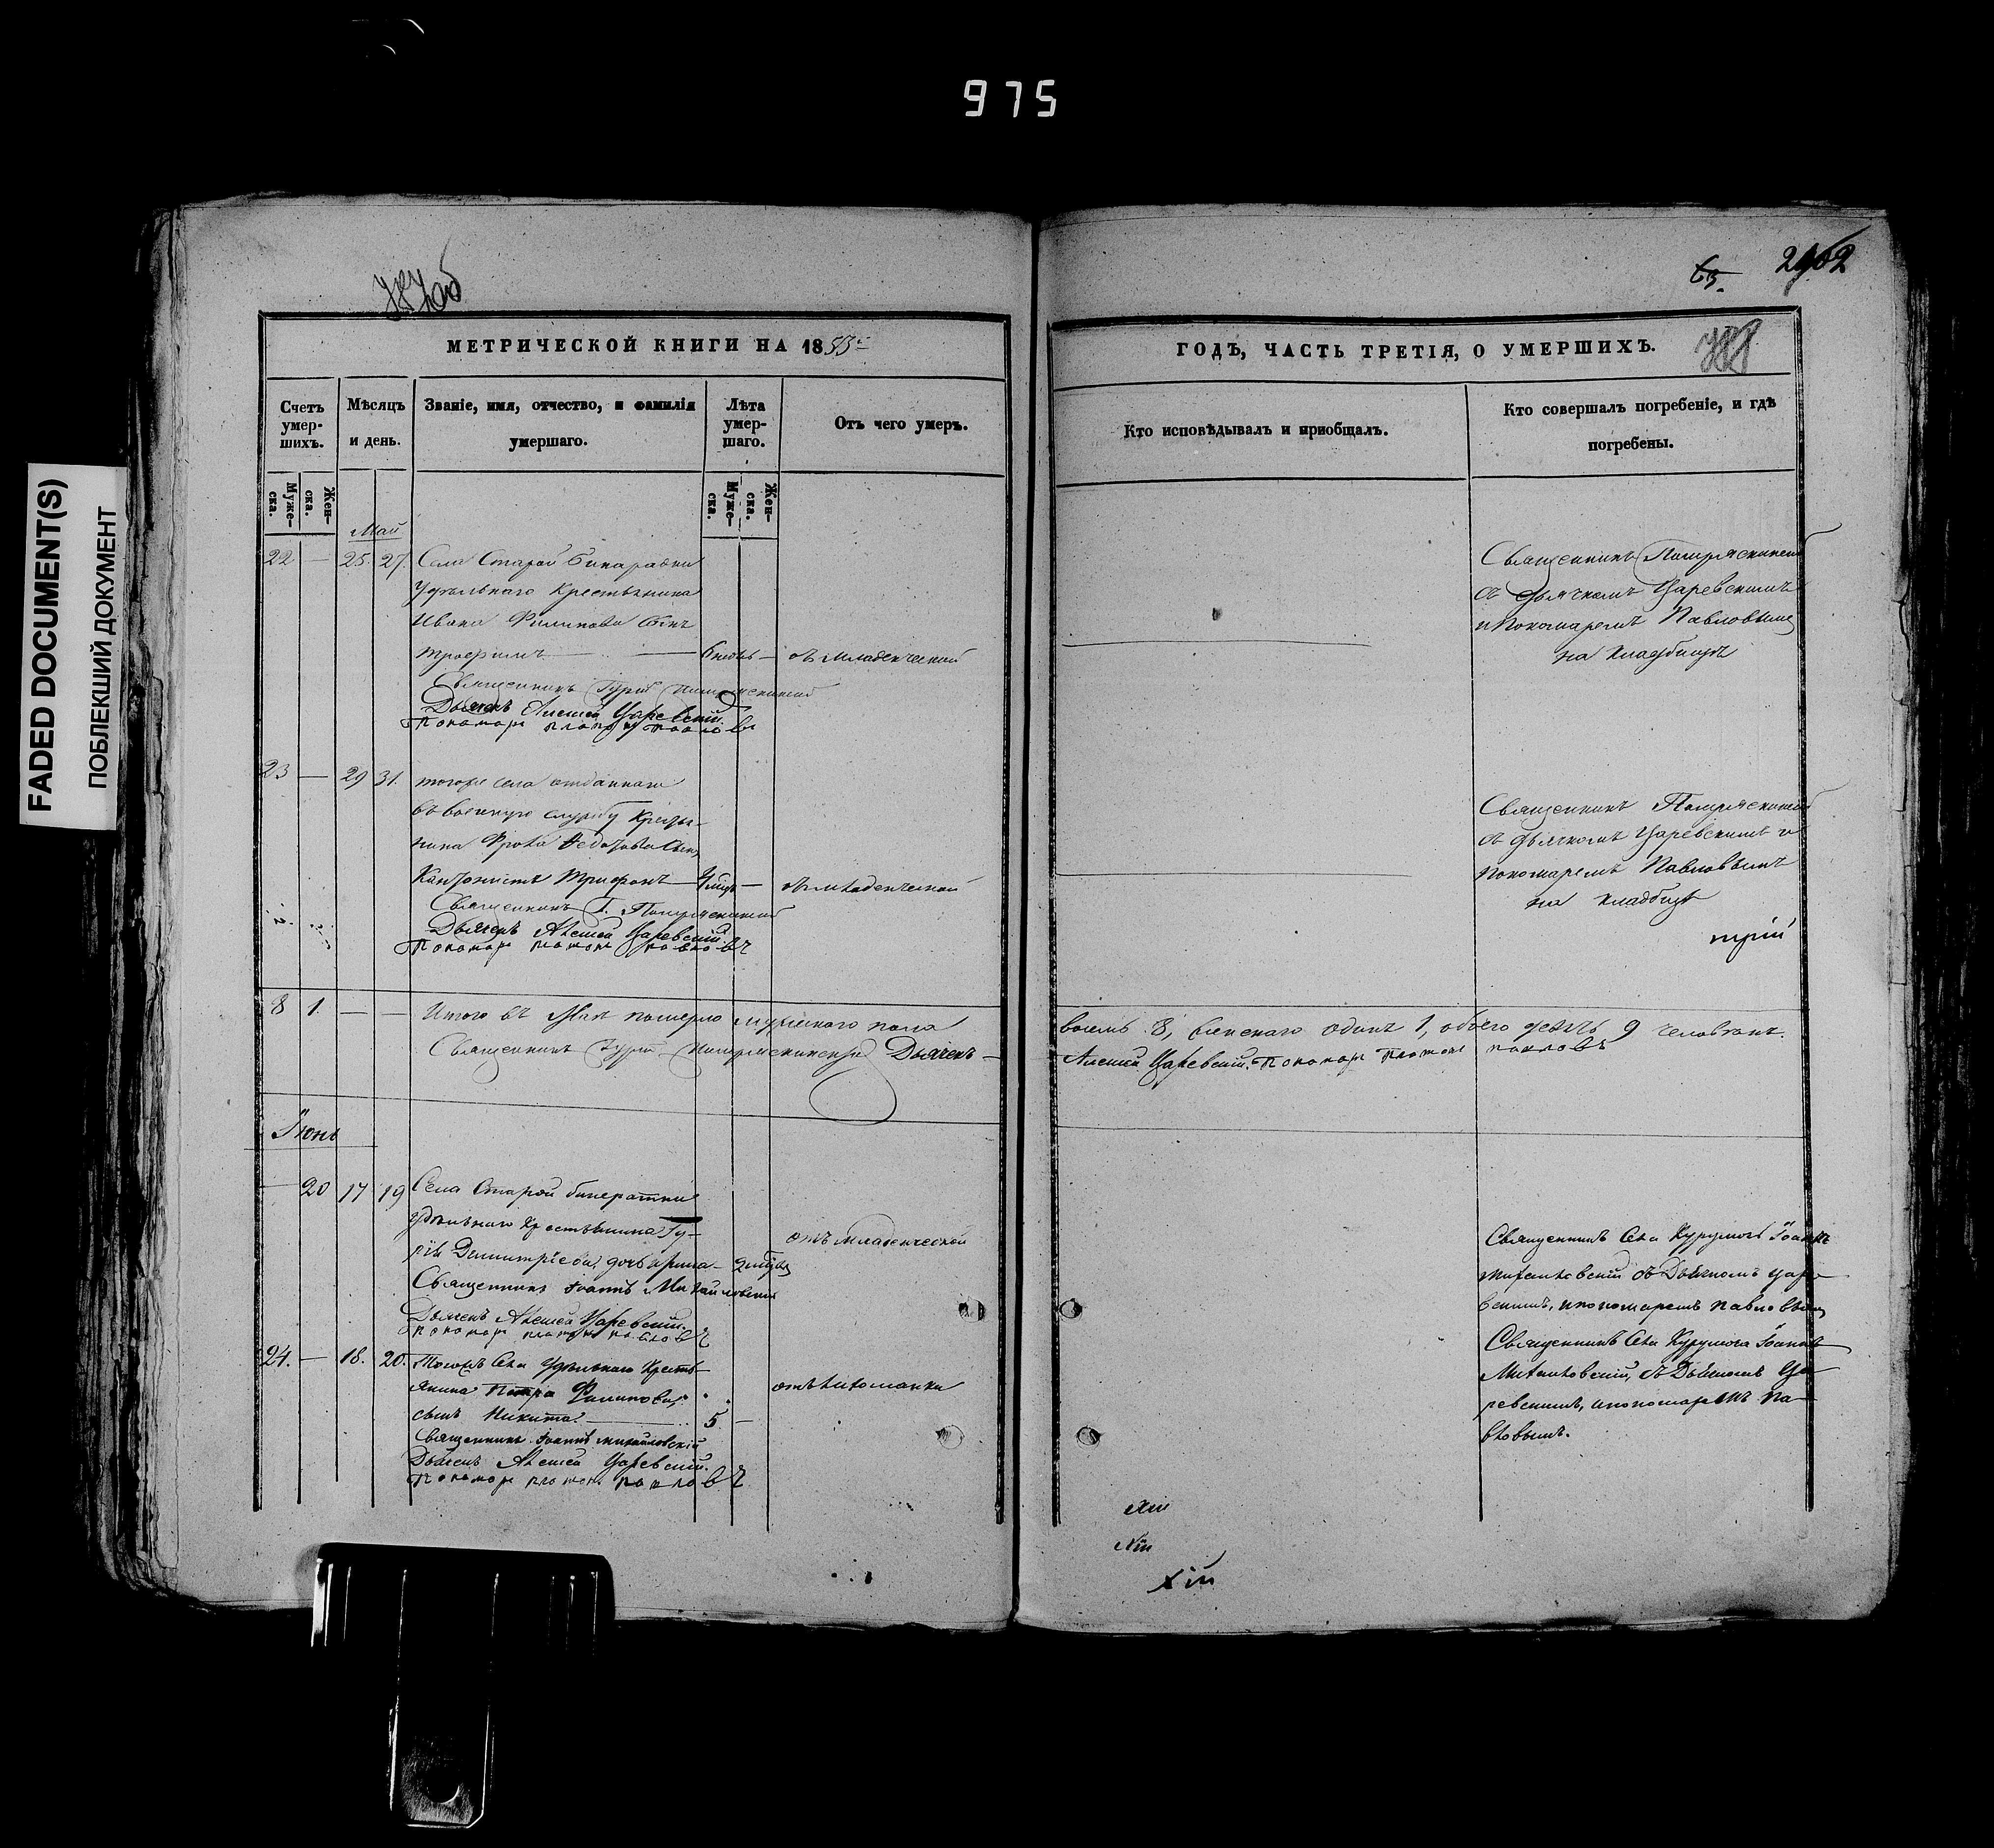 975
FADED DOCUMENT(S)
ПОБЛЕКШИЙ ДОКУМЕНТ
63.
МЕТРИЧЕСКОЙ КНИГИ НА 1853
ГОДЪ, ЧАСТЬ ТРЕТІЯ, О УМЕРШИХЪ.
Счетъ умер-шихъ.
Муже-ска.
Жен-ска.
Мѣсяцъ и день.
Званіе, имя, отчество, и фамилія умершаго.
Лѣта умер-шаго.
Муже-ска.
Жен-ска.
Отъ чего умеръ.
Кто исповѣдывалъ и пріобщалъ.
Кто совершалъ погребеніе, и гдѣ погребены.
Май
22 — 25. 27. Села Старой Бинарадки
Удѣльнаго Крестьянина
Ивана Филипова Сынъ
Трофимъ — отъ младенческой
Священникъ Гурій
Дьячекъ Алексей Царевскій.
Пономарь Платонъ Павловъ
Священникъ
съ Дьячкомъ Царевскимъ
и Пономаремъ Павловымъ
на кладбищѣ
23 — 29 31. тогоже села отданнаго
въ военную службу Крестья-
нина Фрола Федотова Сынъ
Кантонистъ Трифонъ — отъ младенческой
Священникъ Г.
Дьячекъ Алексей Царевскій.
Пономарь Платонъ Павловъ
Священникъ
съ Дьячкомъ Царевскимъ и
Пономаремъ Павловымъ
на кладбищѣ
8 1. — — Итого въ Маѣ померло мужескаго пола
восемь 8, женскаго одинъ 1, обоего девять 9 человѣкъ.
Священникъ Гурій Дьячекъ
Алексей Царевскій. Пономарь Платонъ Павловъ
Іюнь
— 20 17 19 Села Старой Бинаратки
удѣльнаго Крестьянина Гу-
рія Димитріева, дочь Ирина — отъ младенческой
Священникъ Іоаннъ Михайловскій
Дьячекъ Алексей Царевскій.
Пономарь Платонъ Павловъ
Священникъ Села Курумоча Іоаннъ
Михайловскій съ Дьячкомъ Царе-
вскимъ, и пономаремъ Павловымъ
24. — 18. 20. Тогожъ Села Удѣльнаго Кресть-
янина Петра Филиповa
сынъ Никита. — 5 —
Священникъ Іоаннъ Михайловскій
Дьячекъ Алексей Царевскій.
Пономарь Платонъ Павловъ
Священникъ Села Курумоча Іоаннъ
Михайловскій, съ Дьячкомъ Ца-
ревскимъ, и пономаремъ Па-
вловымъ.